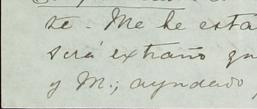 se. Me he esta
será extraño qu
y M.; ayudado